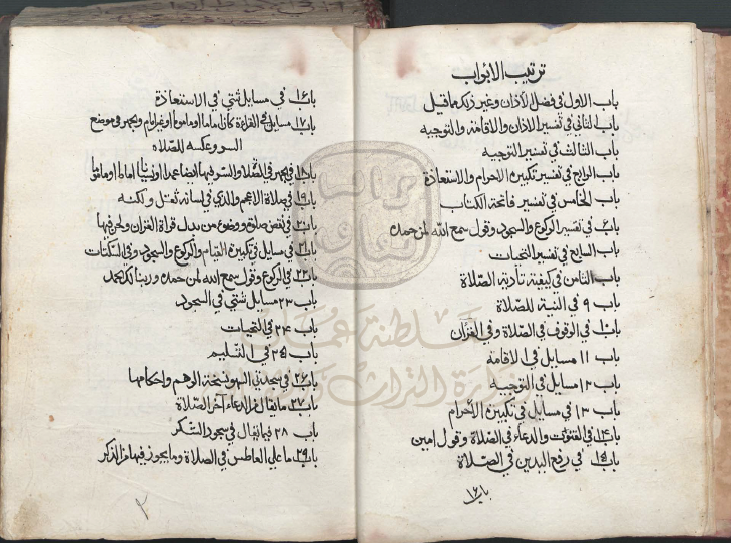 ترتيب الابواب
باب الاول في فضل الأذان وغير ذلك ما قيل
باب الثاني في تفسير الاذان والاقامة والتوجيه
باب الثالث في تفسير التوجيه
باب الرابع في تفسير تكبيرة الاحرام والاستعاذة
باب الخامس في تفسير فاتحة الكتاب
باب ٦ في تفسير الركوع والسجود وقول سمع الله لمن حمده
باب السابع في تفسير التحيات
باب الثامن في كيفية تأدية الصلاة
باب ٩ في النية للصلاة
باب ١٠ في الوقوف في الصلاة وفي
باب ١١ مسايل في الاقامة
باب ١٢ مسايل في التوجيه
باب ١٣ في مسايل في تكبيرة الأحرام
باب ١٤ في القنوت والدعاء في الصلاة وقول امين
باب ١٥ في رفع اليدين في الصلاة
باب ١٦
باب ١٦ في مسايل شتي في الاستعاذة
باب ١٧ مسايل في القراءة كان اماما او ماموما او غير امام ويجهر في موضع
السر وعكسه للصلاه
باب ١٨ في يجهر في الصلاة والسر فيها ايضا عمدا او نسيانا اماما او ماموما
باب ١٩ في صلاة الاعجم والذي في لسانه ثقل ولكنه
باب ٢٠ في نقض صلاة ووضوء من بدل قراة القران ولحن فيها
باب ٢١ في مسايل في تكبيرة القيام والركوع والسجود وفي السكتات
باب ٢٢ في الركوع وقول سمع الله لمن حمده وربنا لك الحمد
باب ٢٣ مسايل شتي في السجود
باب ٢٤ في التحيات
باب ٢٥ في التسليم
باب ٢٦ في سجدتي السهو الوهم واحكامها
باب ٢٧ ما يقال من الدعاء آخر الصلاة
باب ٢٨ فيما يقال في سجود الشكر
باب ٢٩ ما علي العاطس في الصلاة وما يجوز فيها من الذكر
٢
سلطنة عمان
وزارة التراث والثقافة